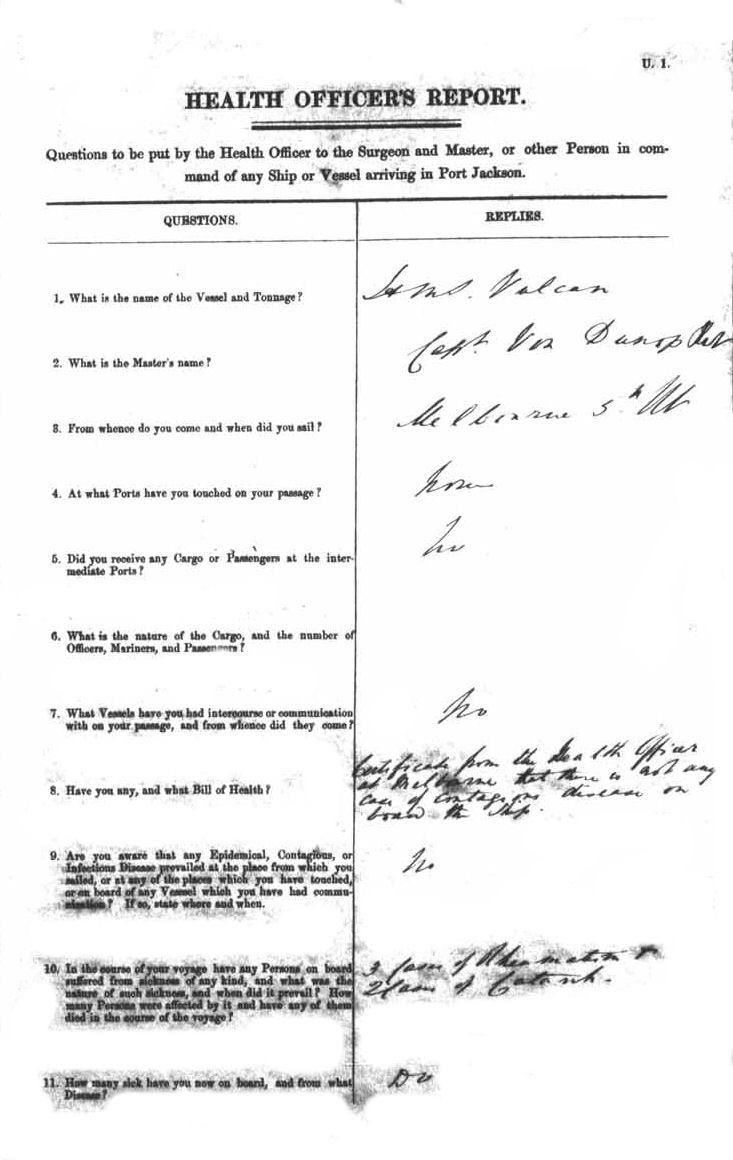 U. 1.
HEALTH OFFICER'S REPORT.
Questions to be put by the Health Officer to the Surgeon and Master, or other Person in com-
mand of any Ship or Vessel arriving in Port Jackson.
QUESTIONS.
REPLIES.
1. What is the name of the Vessel and Tonnage?
H.M.S. Vulcan
2. What is the Master's name?
Capt. Von
3. From whence do you come and when did you sail?
Melbourne 5th
4. At what Ports have you touched on your passage?
None
5. Did you receive any Cargo or Passengers at the inter-
mediate Ports?
No
6. What is the nature of the Cargo, and the number of
Officers, Mariners, and Passengers?
7. What Vessels have you had intercourse or communication
with on your passage, and from whence did they come?
No
8. Have you any, and what Bill of Health?
Certificate from the Health Officer
at Melbourne that there is not any
case of contagious disease on
board the Ship.
9. Are you aware that any Epidemical, Contagious, or
Infectious Disease prevailed at the place from which you
sailed, or at any of the places which you have touched,
or on board of any Vessel which you have had commu-
nication? If so, state where and when.
No
10. In the course of your voyage have any Persons on board
suffered from sickness of any kind, and what was the
nature of such sickness, and when did it prevail? How
many Persons were affected by it and have any of them
died in the course of the voyage?
3 Cases of Rheumatism &
2 Cases of Catarrh.
11. How many sick have you now on board, and from what
Disease?
Do